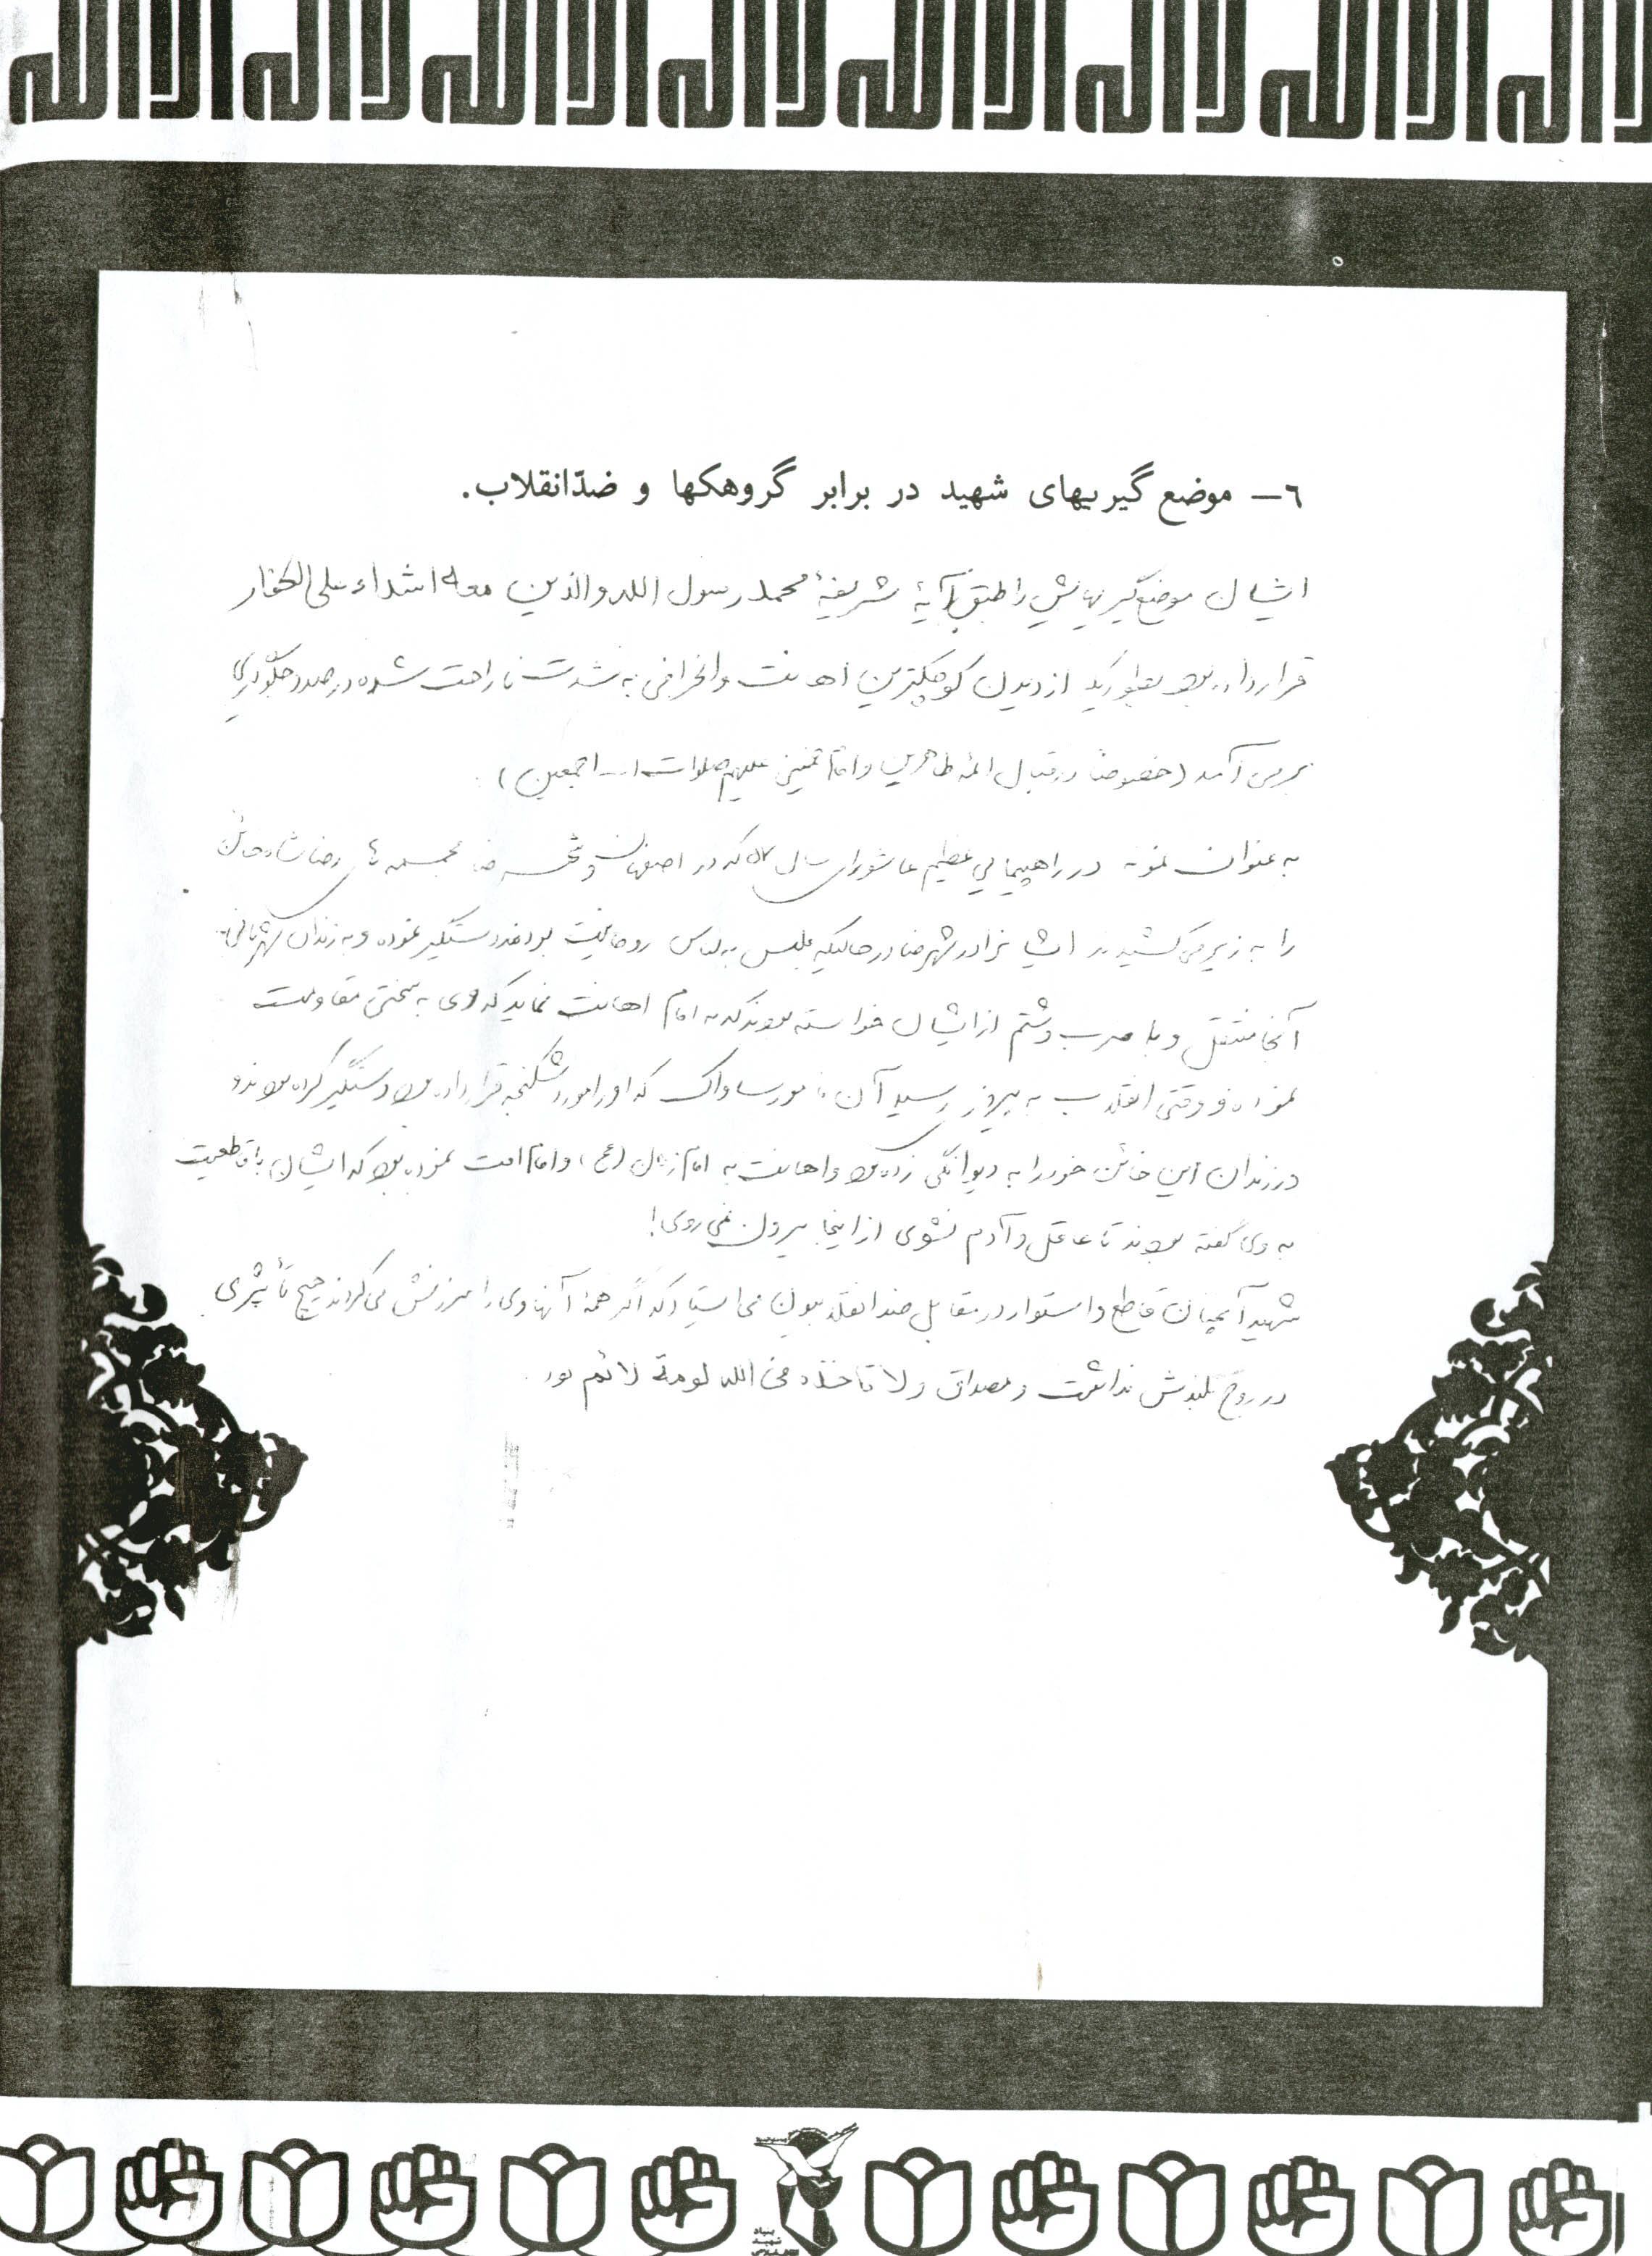 لا اله الا الله لا اله الا الله لا اله الا الله لا اله
٦– موضع گیریهای شهید در برابر گروهکها و ضدّانقلاب.
ایشان موضع‌گیریهایش را طبق آیهٔ شریفهٔ محمد رسول الله والذین معه اشداء علی الکفار
قرار داده بود بطوریکه از دیدن کوچکترین اهانت و انحرافی به شدت ناراحت شده در صدد جلوگیری
برمی آمد (خصوصاً در قبال ائمه طاهرین و امام خمینی علیهم صلوات ا... اجمعین).
به عنوان نمونه در راهپیمائی عظیم عاشورای سال ۵۷ که در اصفهان و شهرضا مجسمه های رضا شاه خائن
را به زیر می کشیدند ایشانرا در شهرضا در حالیکه ملبس به لباس روحانیت بودند دستگیر نموده و به زندان شهربانی
آنجا منتقل و با ضرب و شتم از ایشان خواسته بودند که به امام اهانت نماید که وی به سختی مقاومت
نموده و وقتی انقلاب به پیروزی رسید آن مامور ساواک که او را مورد شکنجه قرار داده بود دستگیر کرده بودند و
در زندان این خائن خود را به دیوانگی زده بود و اهانت به امام زمان (عج) و امام امت نموده بود که ایشان با قاطعیت
به وی گفته بودند تا عاقل و آدم نشوی از اینجا بیرون نمی روی!
شهید آنچنان قاطع و استوار در مقابل ضد انقلابیون می ایستاد که اگر همهٔ آنها وی را سرزنش می کردند هیچ تأثیری
در روح بلندش نداشت و مصداق ولا تاخذه فی الله لومة لائم بود.
بنیاد
شهید